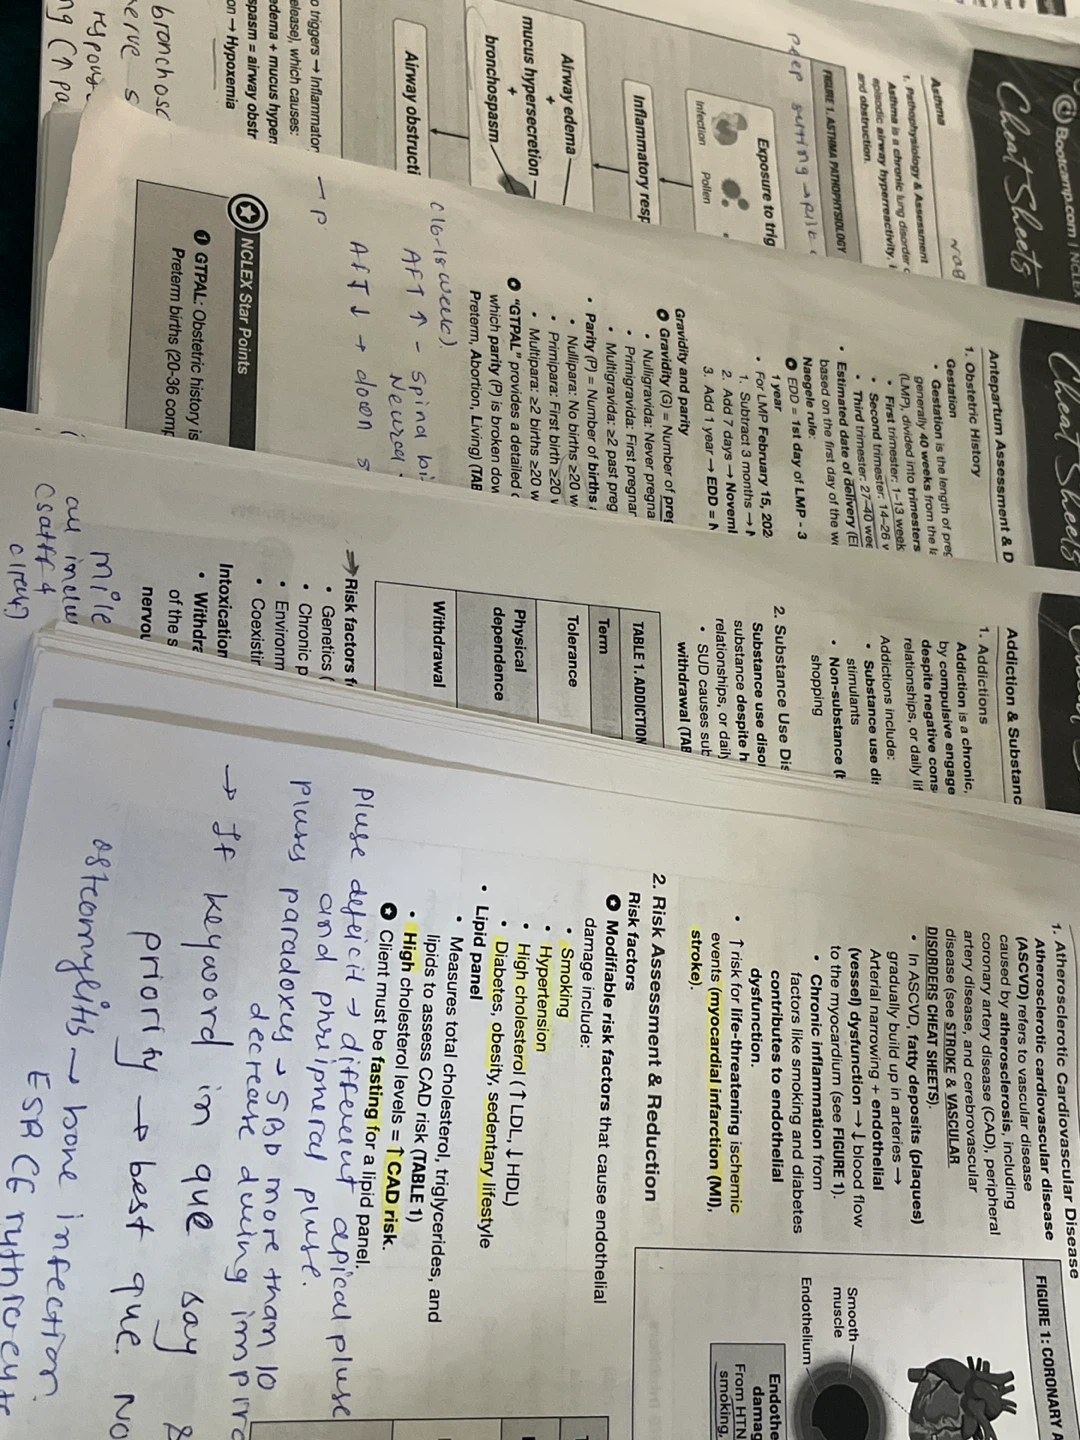 Bootcamp.com | NCLEX
Cheat Sheets
Asthma
1. Pathophysiology & Assessment
Asthma is a chronic lung disorder
episodic airway hyperreactivity,
and obstruction.
FIGURE 1. ASTHMA PATHOPHYSIOLOGY
peep setting →
Exposure to trig
Infection
Pollen
Inflammatory resp
Airway edema
+
mucus hypersecretion
+
bronchospasm
Airway obstructi
o triggers → Inflammator
elease), which causes:
edema + mucus hypers
spasm = airway obstr
on → Hypoxemia
bronchosc
nerve s
Cheat Sheets
Antepartum Assessment & D
1. Obstetric History
Gestation
• Gestation is the length of preg
generally 40 weeks from the la
(LMP), divided into trimesters
• First trimester: 1-13 week
• Second trimester: 14-26 w
• Third trimester: 27-40 wee
• Estimated date of delivery (E
based on the first day of the
Naegele rule:
EDD = 1st day of LMP - 3
1 year
• For LMP February 15, 202
1. Subtract 3 months →
2. Add 7 days → Novem
3. Add 1 year → EDD = N
Gravidity and parity
Gravidity (G) = Number of preg
• Nulligravida: Never pregna
• Primigravida: First pregnar
• Multigravida: ≥2 past preg
• Parity (P) = Number of births
• Nullipara: No births ≥20 w
• Primipara: First birth ≥20
• Multipara: ≥2 births ≥20 w
"GTPAL" provides a detailed
which parity (P) is broken dow
Preterm, Abortion, Living) (TAB
(16-18 week).
AFT ↑ - Spina bi
Neural
AFT ↓ → down s
→ P
NCLEX Star Points
1 GTPAL: Obstetric history is
Preterm births (20-36 comp
Addiction & Substanc
1. Addictions
Addiction is a chronic,
by compulsive engage
despite negative cons
relationships, or daily lif
Addictions include:
• Substance use di
stimulants
• Non-substance (
shopping
2. Substance Use Dis
Substance use disor
substance despite h
relationships, or daily
• SUD causes sub
withdrawal (TAB
TABLE 1. ADDICTION
Term
Tolerance
Physical
dependence
Withdrawal
Risk factors f
• Genetics (
• Chronic p
• Environm
• Coexistin
Intoxication
• Withdra
of the s
nervou
1. Atherosclerotic Cardiovascular Disease
Atherosclerotic cardiovascular disease
(ASCVD) refers to vascular disease
caused by atherosclerosis, including
coronary artery disease (CAD), peripheral
artery disease, and cerebrovascular
disease (see STROKE & VASCULAR
DISORDERS CHEAT SHEETS).
• In ASCVD, fatty deposits (plaques)
gradually build up in arteries →
Arterial narrowing + endothelial
(vessel) dysfunction → ↓ blood flow
to the myocardium (see FIGURE 1).
• Chronic inflammation from
factors like smoking and diabetes
contributes to endothelial
dysfunction.
• ↑ risk for life-threatening ischemic
events (myocardial infarction (MI),
stroke).
2. Risk Assessment & Reduction
Risk factors
Modifiable risk factors that cause endothelial
damage include:
• Smoking
• Hypertension
• High cholesterol (↑ LDL, ↓ HDL)
• Diabetes, obesity, sedentary lifestyle
• Lipid panel
• Measures total cholesterol, triglycerides, and
lipids to assess CAD risk (TABLE 1)
• High cholesterol levels = ↑ CAD risk.
Client must be fasting for a lipid panel.
FIGURE 1: CORONARY A
Smooth
muscle
Endothelium
Endothe
damag
From HTN
smoking,
pluse deficit → different apical pluse
and phripheral pluse.
pluses paradoxus → SBP more than 10
decrease during inspira
→ If keyword in que say
priority → best que. No
osteomylitis → bone infection.
ESR (Erythrocyte